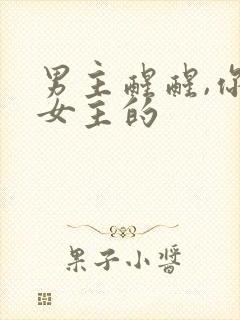 男主醒醒,你
女主的
果子小酱